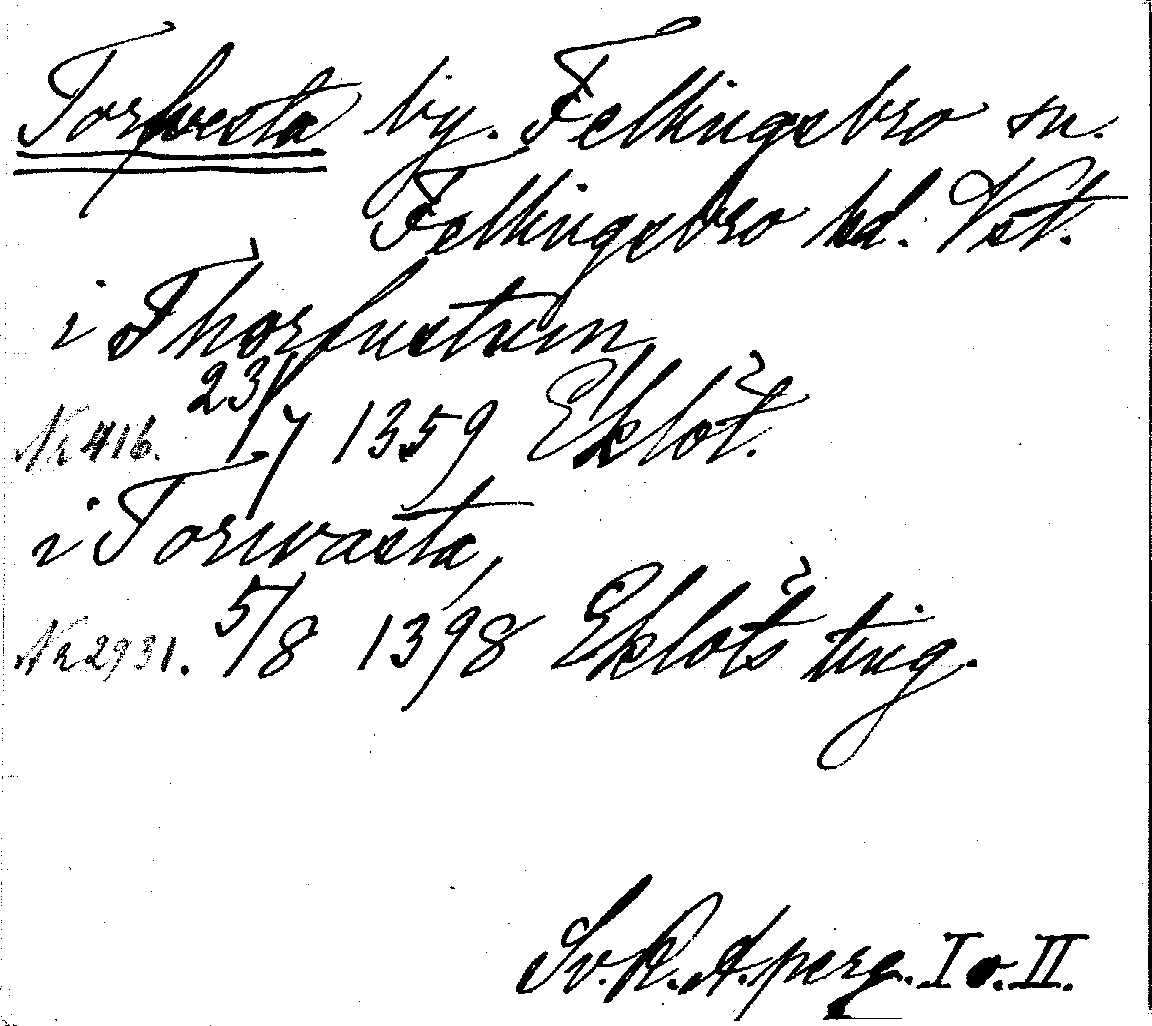 Torfvesta by. Fellingsbro sn.
Fellingsbro hd. Vst.
i Thorfustum,
Nr 416. 23/7 1359 Eklöt.
i Torwasta,
Nr 2931. 5/8 1398 Eklöts ting.
Sv. R. A. perg. I o. II.